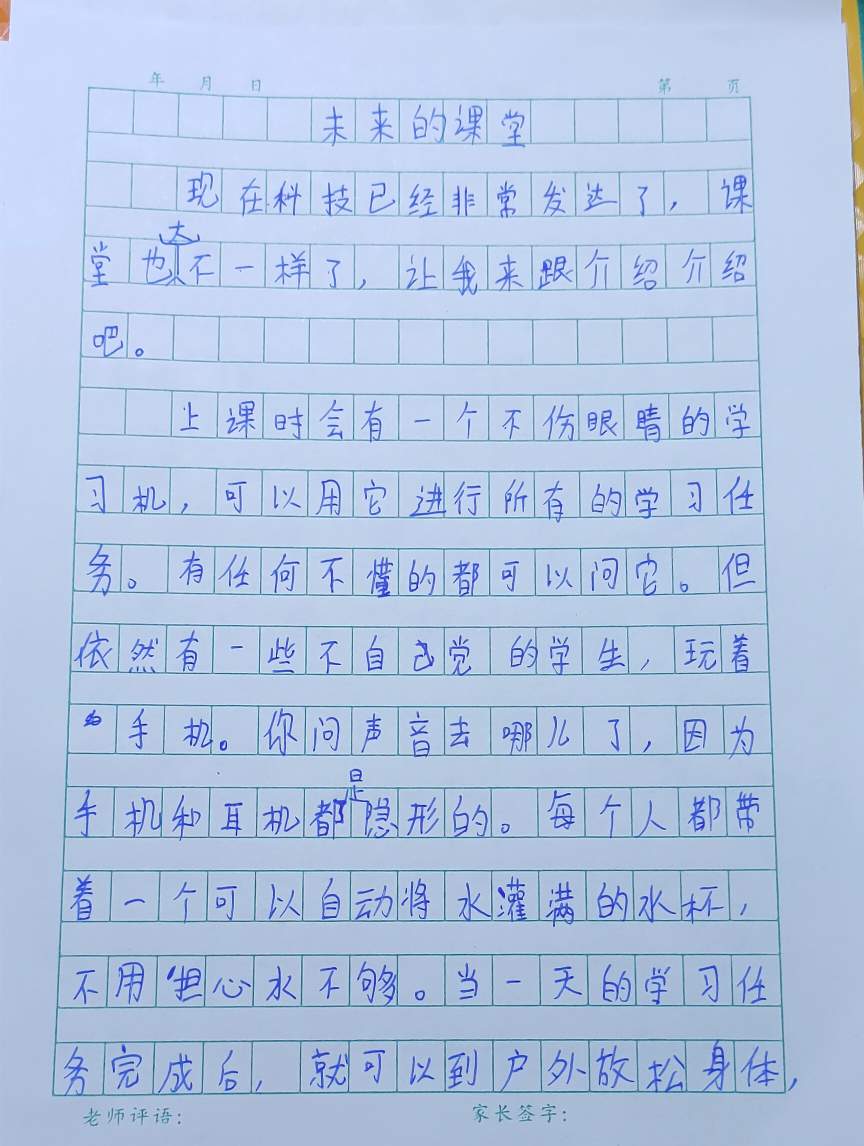 年 月 日 第 页
未来的课堂
现在科技已经非常发达了，课
堂也大不一样了，让我来跟介绍介绍
吧。
上课时会有一个不伤眼睛的学
习机，可以用它进行所有的学习任
务。有任何不懂的都可以问它。但
依然有一些不自觉的学生，玩着
手机。你问声音去哪儿了，因为
手机和耳机都是隐形的。每个人都带
着一个可以自动将水灌满的水杯，
不用担心水不够。当一天的学习任
务完成后，就可以到户外放松身体，
老师评语： 家长签字：